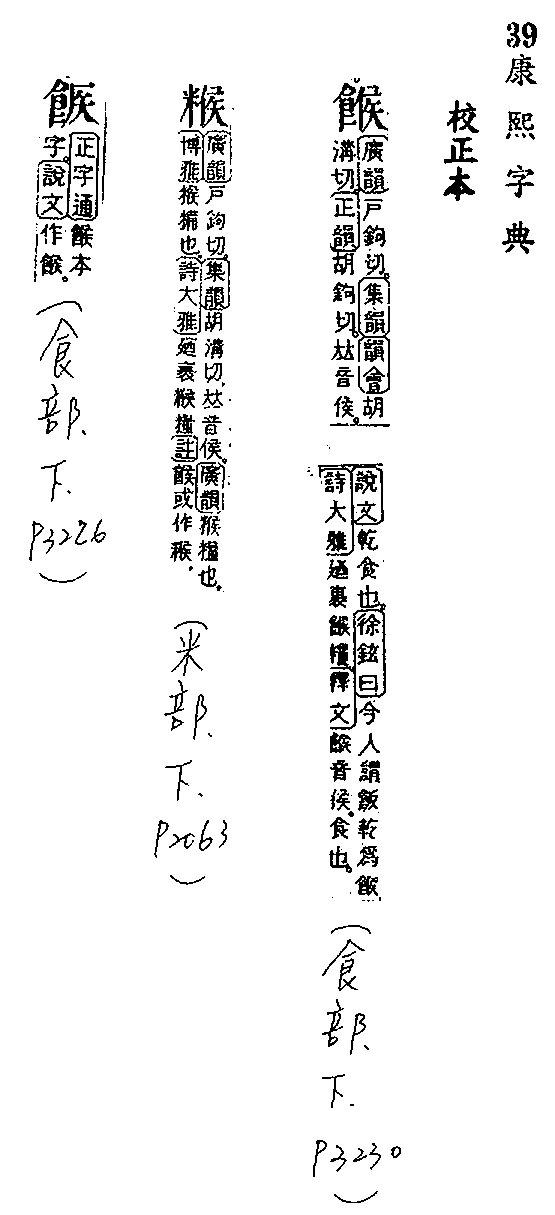 39
康熙字典
校正本
餱
廣韻戸鉤切集韻韻會胡
溝切正韻胡鉤切𠀤音侯。
說文乾食也。徐鉉曰今人謂飯乾爲餱
詩大雅廼裹餱糧釋文餱音侯。食也。
(食部下.P3230)
糇
廣韻戸鉤切。集韻胡溝切,𠀤音侯。廣韻糇糧也。
博雅糇糒也。詩大雅廼裹糇糧註餱或作糇。
(米部下.P2063)
𩚭
正字通餱本
字。說文作𩚭。
(食部下.P3226)